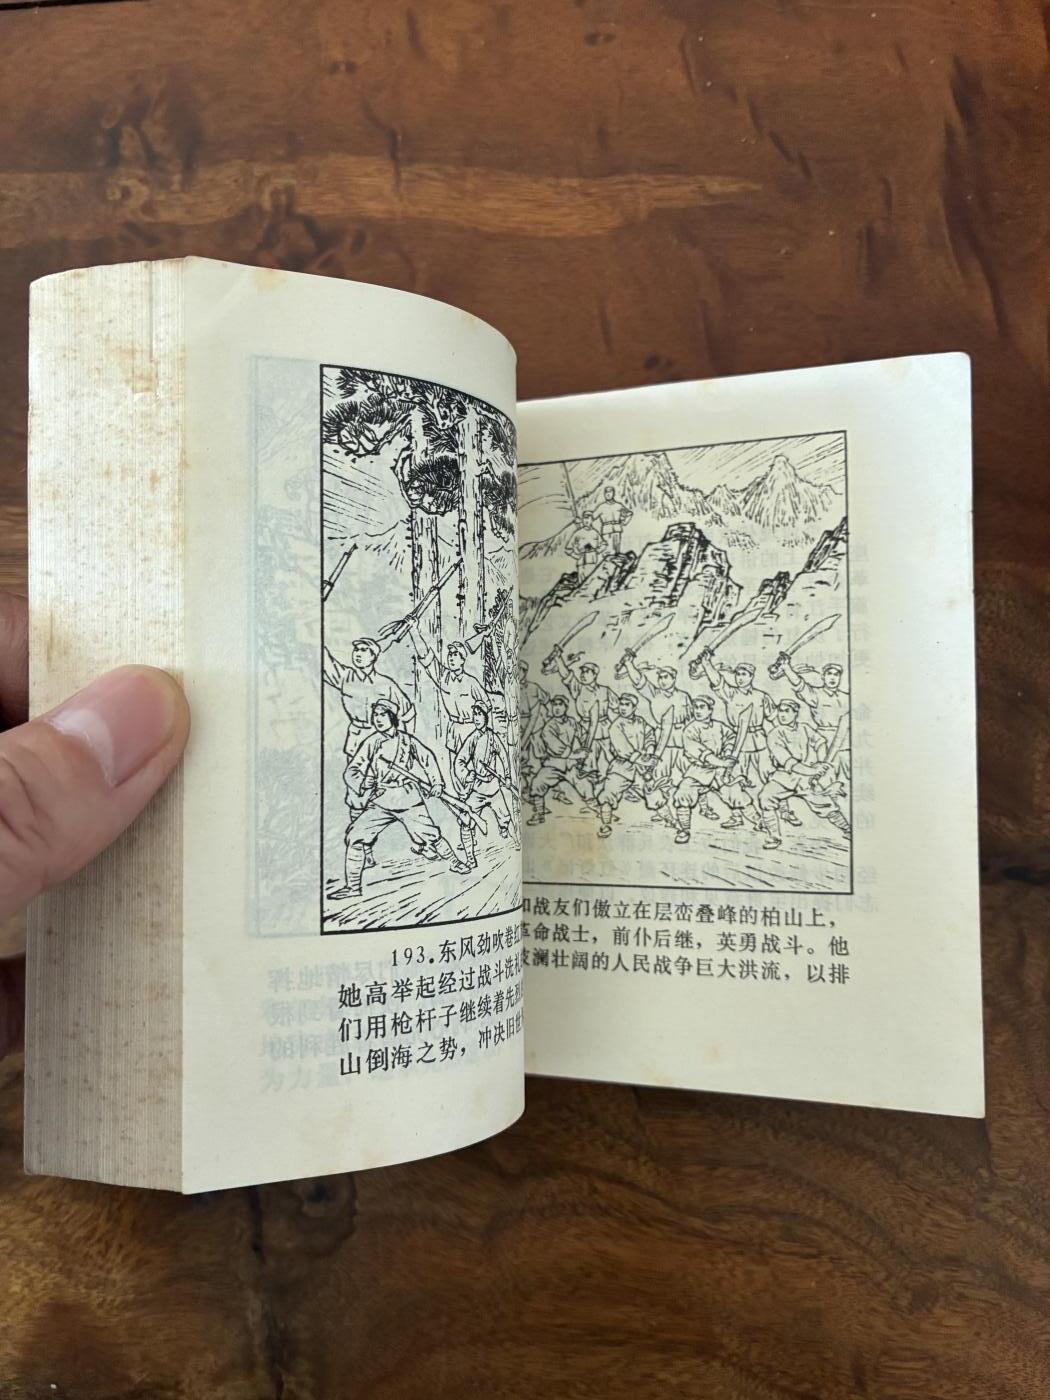 193.东风劲吹卷红 和战友们傲立在层峦叠峰的柏山上，
她高举起经过战斗洗礼 革命战士，前仆后继，英勇战斗。他
们用枪杆子继续着先烈 澜壮阔的人民战争巨大洪流，以排
山倒海之势，冲决旧世